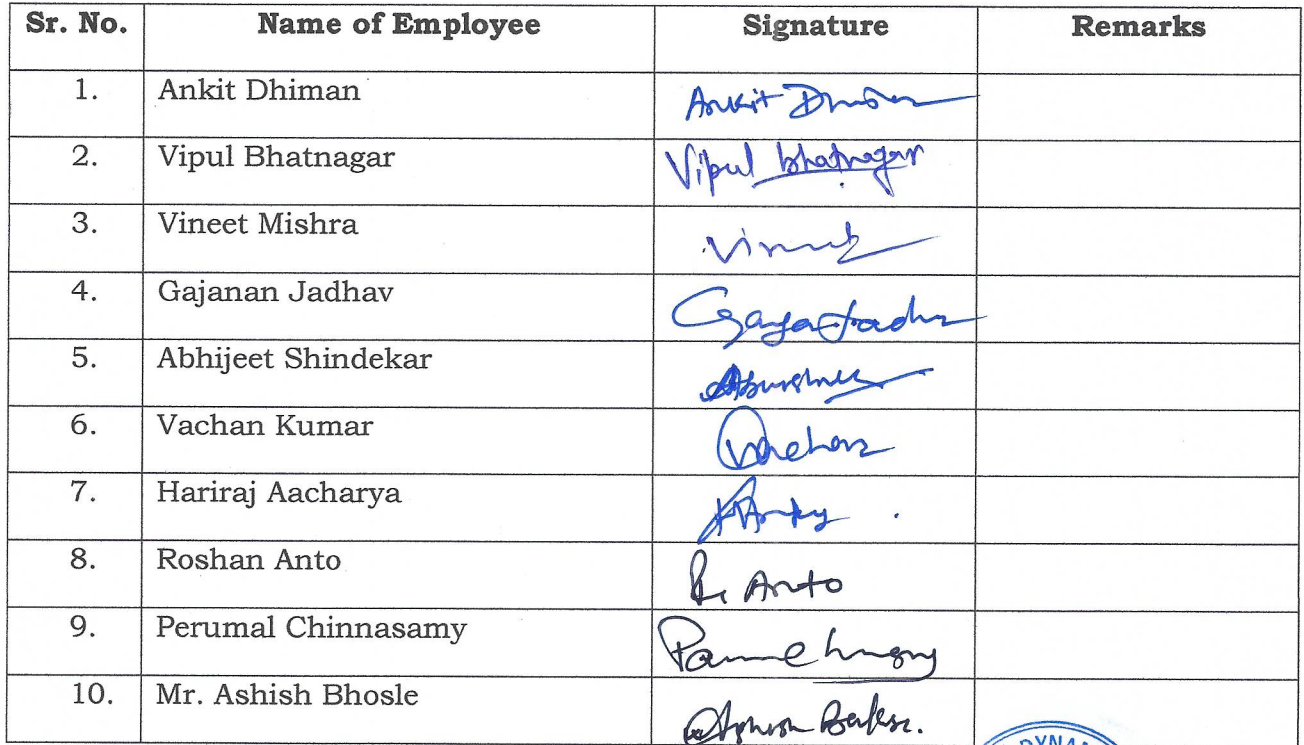 Sr. No. Name of Employee Signature Remarks
1. Ankit Dhiman Ankit
2. Vipul Bhatnagar Vipul bhatnagar
3. Vineet Mishra
4. Gajanan Jadhav
5. Abhijeet Shindekar
6. Vachan Kumar
7. Hariraj Aacharya
8. Roshan Anto R. Anto
9. Perumal Chinnasamy
10. Mr. Ashish Bhosle